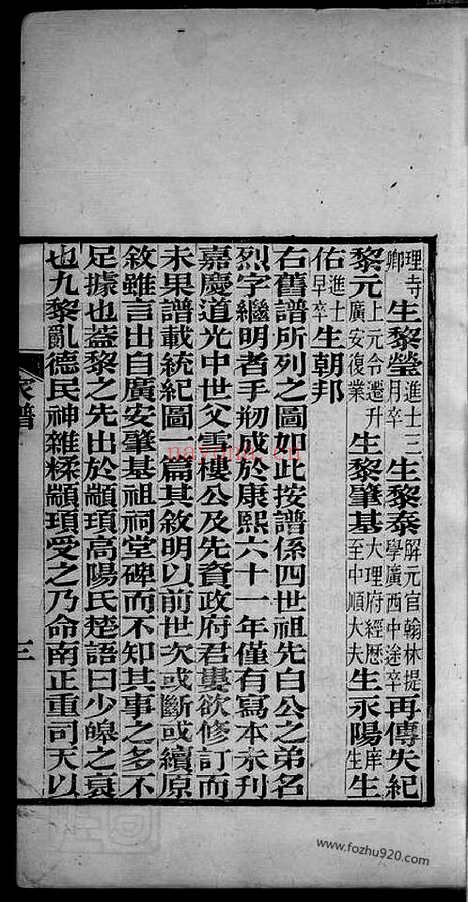 理寺卿生黎瑩進士三月卒生黎泰解元官翰林提學廣西中途卒再傳失紀
黎元上元令遷升廣安復業生黎肇基大理府經歷至中順大夫生永陽庠生生
佑進士早卒生朝邦
右舊譜所列之圖如此按譜係四世祖先白公之弟名
烈字繼明者手剏成於康熙六十一年僅有寫本未刊
嘉慶道光中世父雪樓公及先資政府君婁欲修訂而
未果譜載統紀圖一篇其敘明以前世次或斷或續原
敘雖言出自廣安肇基祖祠堂碑而不知其事之多不
足據也蓋黎之先出於顓頊高陽氏楚語曰少皞之衰
也九黎亂德民神雜糅顓頊受之乃命南正重司天以
家譜
三
nayona.cn
www.fozhu920.com